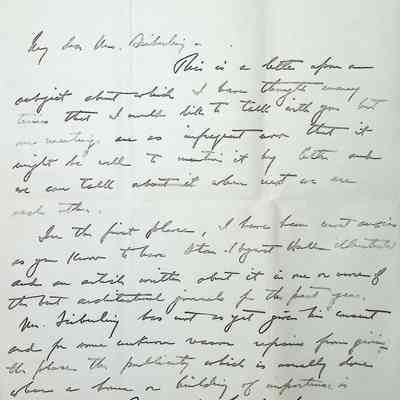 My dear Mrs. Seiberling -
This is a letter upon a
subject about which I have thought many
times that I would like to talk with you but
our meetings are so infrequent now that it
might be well to mention it by letter and
we can talk about it when next we see
each other.
In the first place, I have been most anxious
as you know to have Stan Hywet Hall illustrated
and an article written about it in one or more of
the best architectural journals for the past year.
Mr. Seiberling has not as yet given his consent
and for some unknown reason refrains from giving
the place the publicity which is usually done
when a home or building of importance is